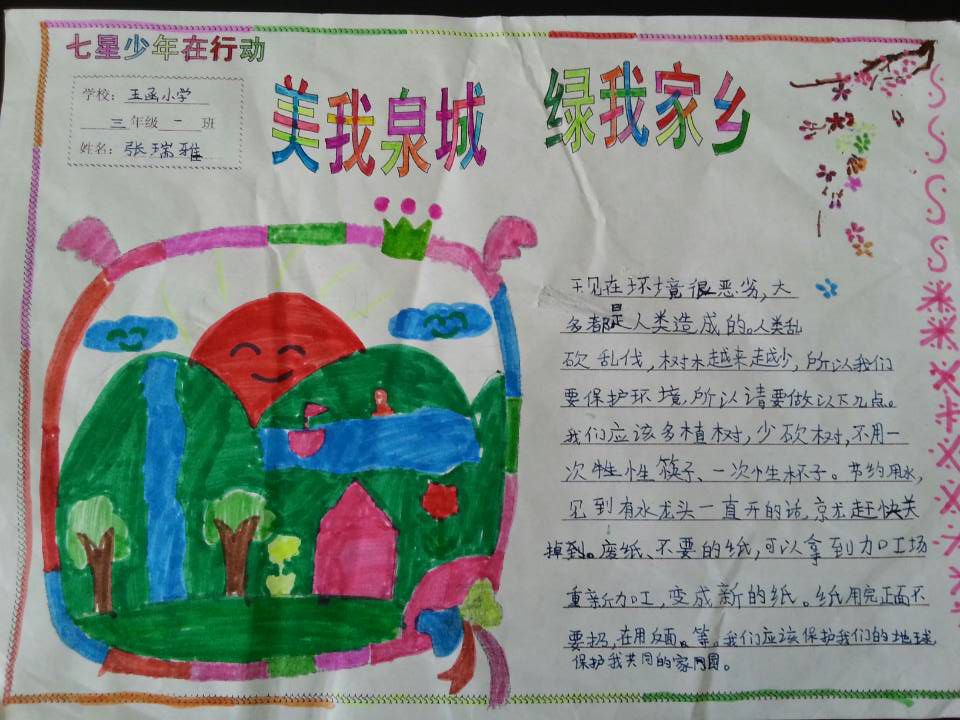 七星少年在行动
学校：玉函小学
三年级一班
姓名：张瑞雅
美我泉城 绿我家乡
现在环境很恶劣,大
多都是人类造成的。人类乱
砍乱伐,树木越来越少,所以我们
要保护环境,所以请要做以下几点。
我们应该多植树,少砍树,不用一
次性性筷子、一次性杯子。节约用水,
见到有水龙头一直开的话,就赶快关
掉到。废纸、不要的纸,可以拿到加工场
重新加工,变成新的纸。纸用完正面不
要扔,在用反面。等。我们应该保护我们的地球,
保护我共同的家园。